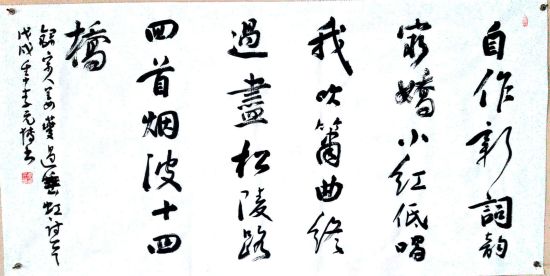 自作新詞韵
最嬌小紅低唱
我吹簫曲終
過盡松陵路
回首烟波十四
橋
錄宋人姜夔過垂虹詩
戊戌年李元博书